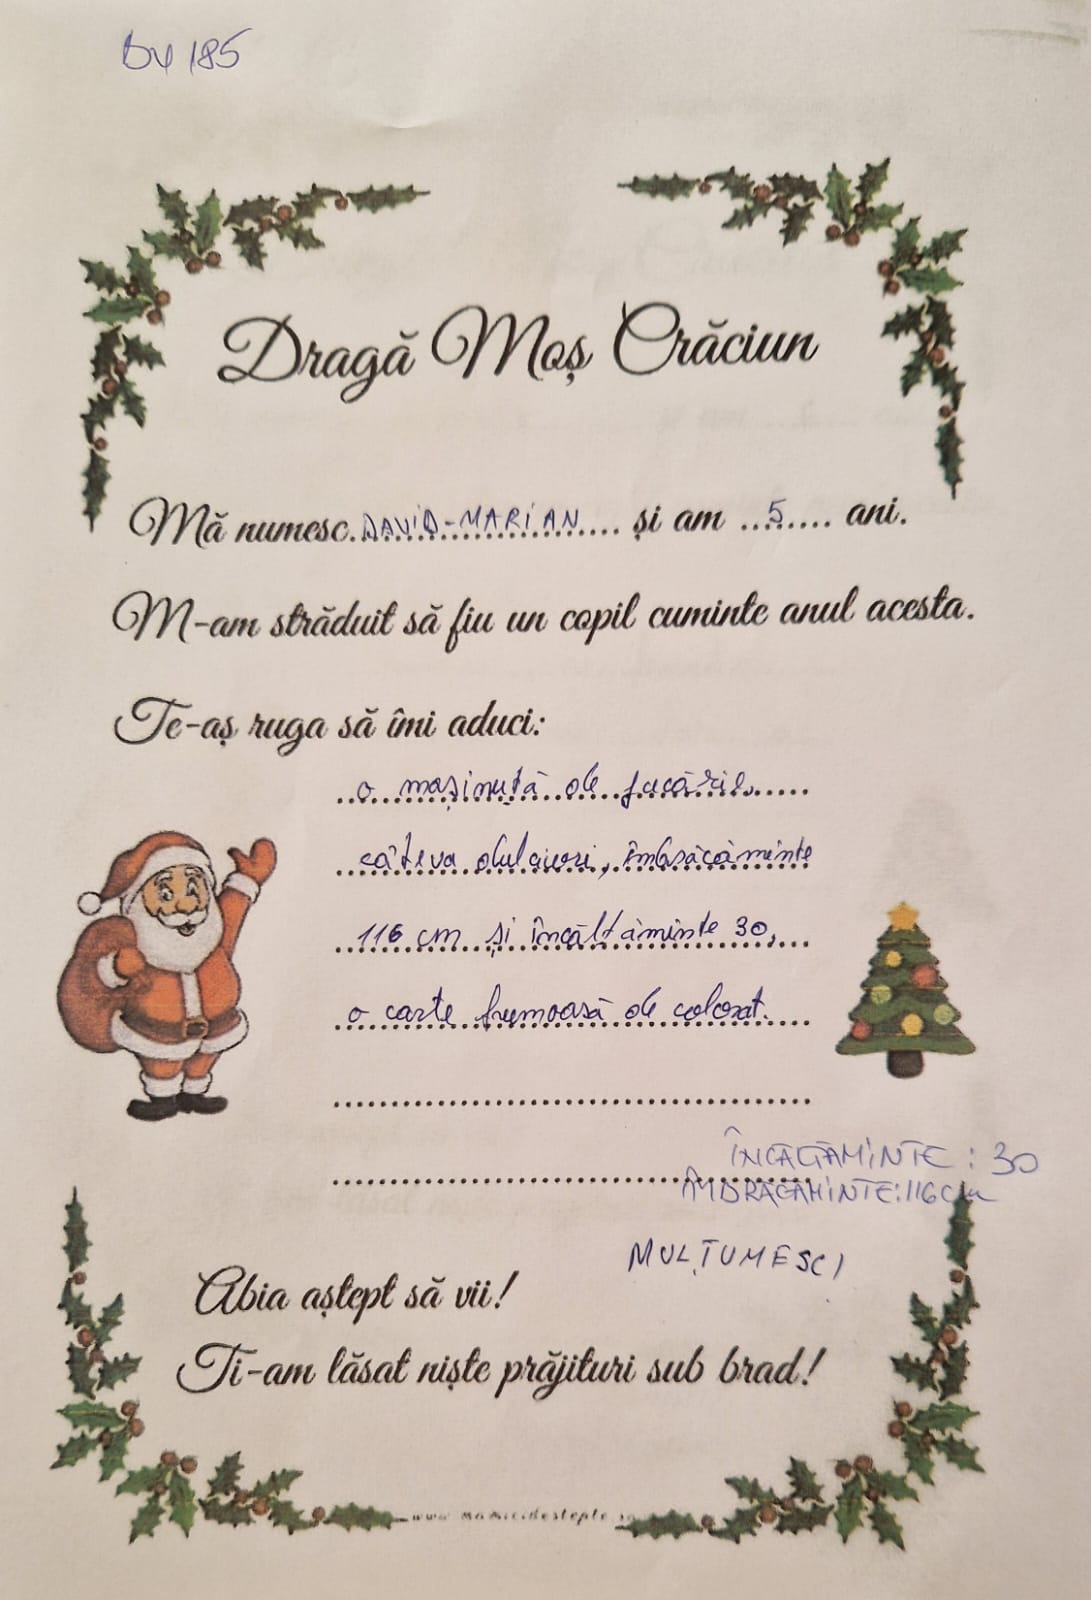 BV 185
Dragă Moș Crăciun
Mă numesc DAVID-MARIAN și am 5 ani.
M-am străduit să fiu un copil cuminte anul acesta.
Te-aș ruga să îmi aduci:
o mașinuță de jucărie,
câteva dulciuri, îmbrăcăminte
116 cm și încălțăminte 30,
o carte frumoasă de colorat.
ÎNCĂLȚĂMINTE: 30
ÎMBRĂCĂMINTE: 116 cm
MULȚUMESC!
Abia aștept să vii!
Ți-am lăsat niște prăjituri sub brad!